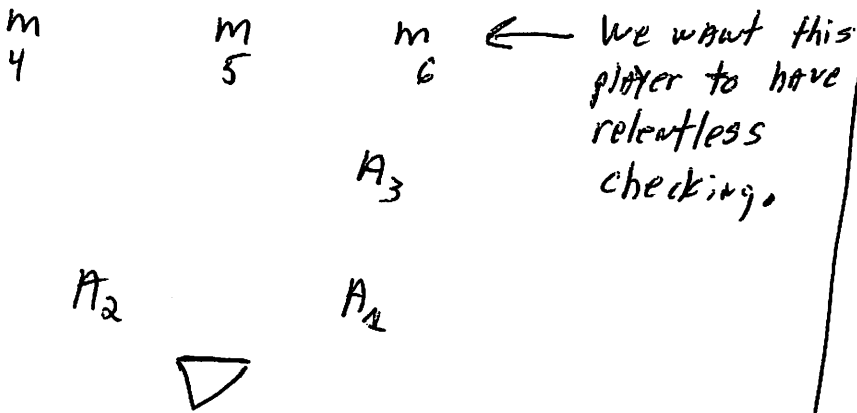 m m m We want this
4 5 6 player to have
relentless
A3 checking.
A2 A1